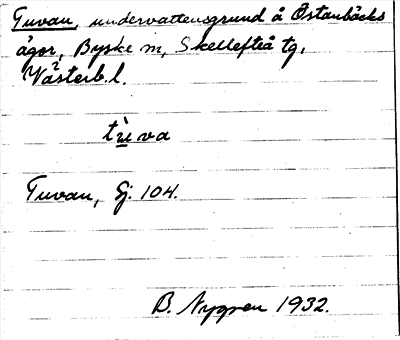 Tuvan, undervattensgrund å Östanbäcks
ägor, Byske sn, Skellefteå tg,
Västerb. l.
tùva
Tuvan, Gj. 104.
B. Nygren 1932.